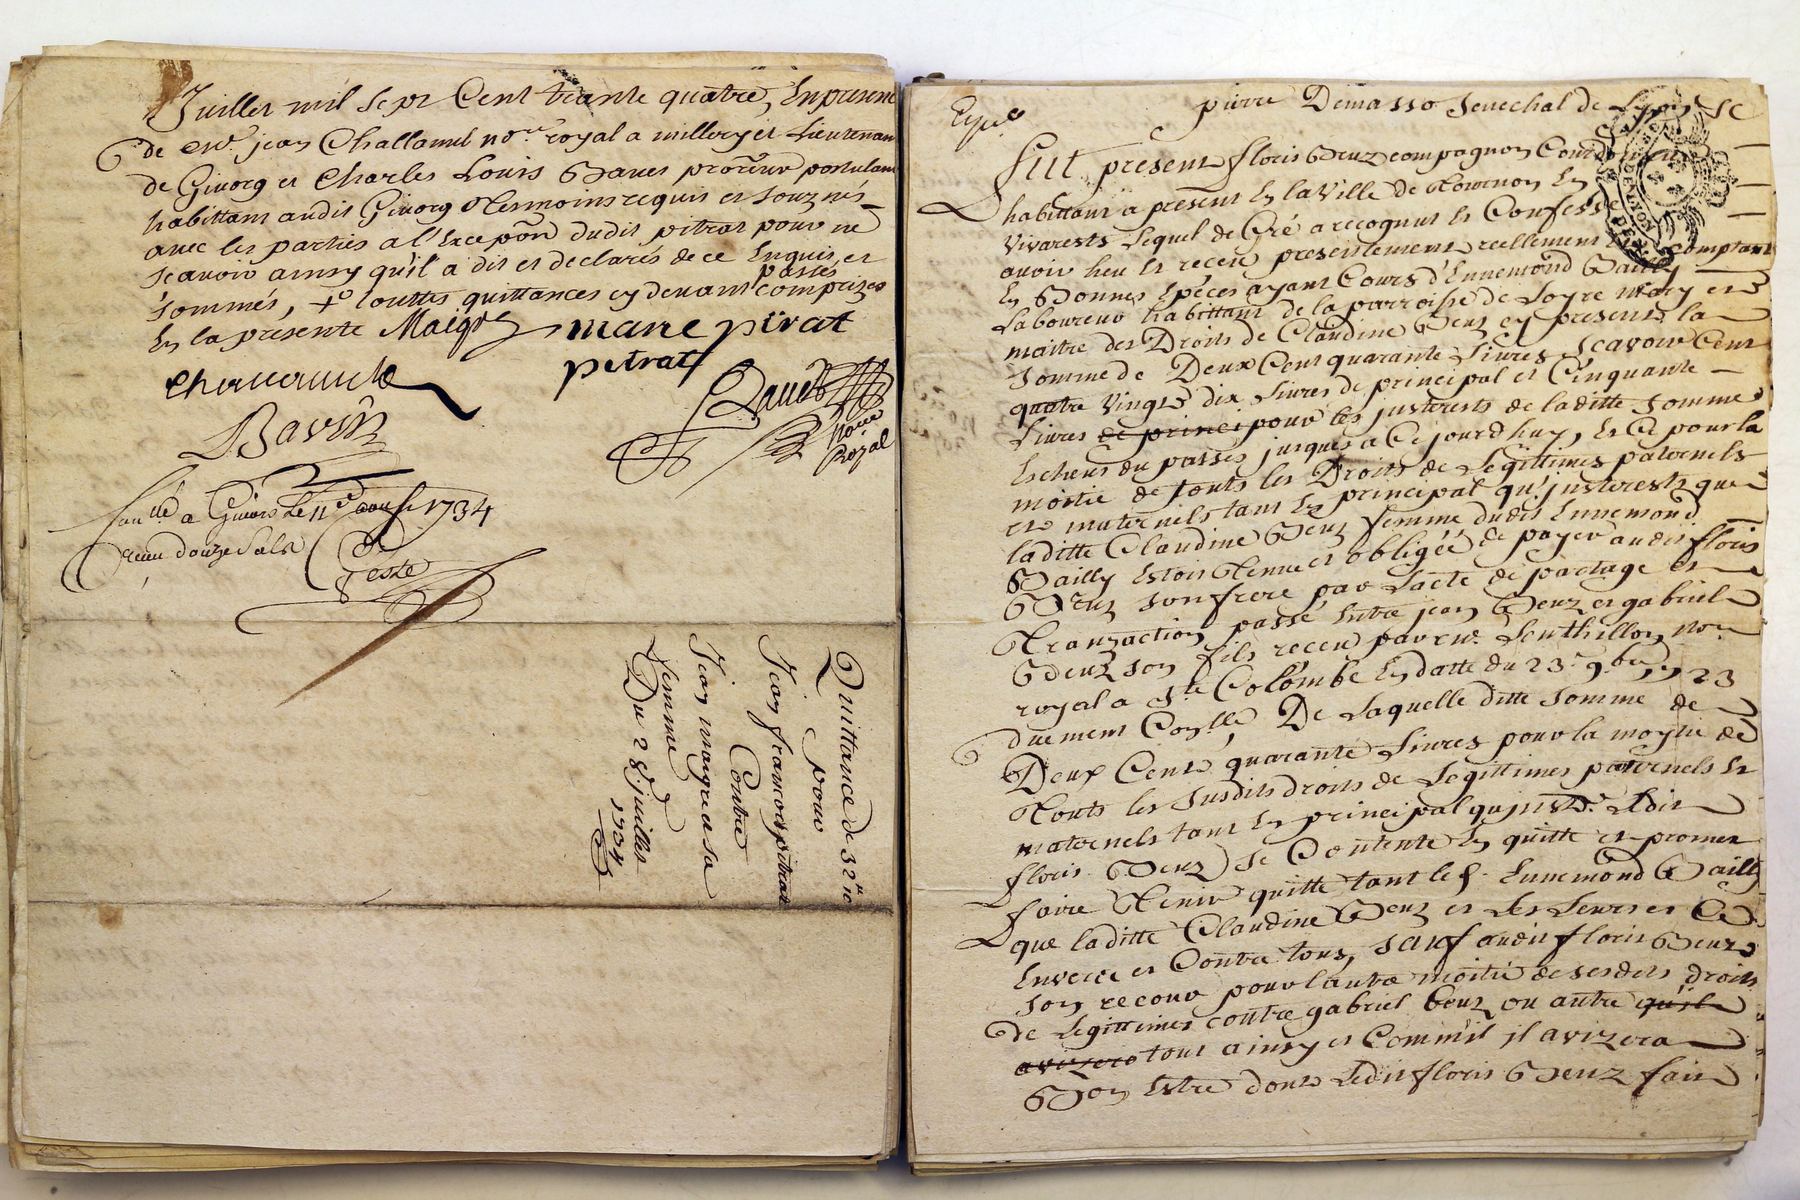 Juillet mil sept Cent trante quatre, En presence
de me. jean Challamel nore. royal a millery et Lieutenant
de Givorg et Charles Louis Baves procureur postulant
habittant audit Givorg Tesmoins requis et souznés
avec les parties a l'Excepon dudit pitrat pour ne
scavoir ainsy qu'il a dit et declarés de ce Enquis et
sommés, +° touttes quittances cy devant passés comprizes
En la presente Maigre marie pitrat
pitrat
Bavoz
nore
Royal
a Givors Le 11e aoust 1734
receu douze sols
Geste
Quittance de 32 tt
pour
Jean francois pitrat
Contre
Jean maigre et sa
femme
Du 28 juillet
1734
pierre Demasso Senechal de Lyon
Fut present floris Beuz compagnon
habittant a present En la ville de Tournon En
Vivarests Lequel de Gré a recognut et Confessé
avoir heu et receu presentement reellement comptant
En Bonnes Espèces ayant Cours d'Ennemond Bailly
Laboureur habittant de la parroisse de Loyre mary et
maitre des Droits de Claudine Beuz cy presente la
somme de Deux Cent quarante Livres Scavoir Cent
quatre vingts dix Livres de principal et Cinquante
Livres de princi pour les justerests de laditte somme
Escheus du passés jusques a Cejourdhuy, Et Ce pour la
moitié de touts les Droits de Legittimes paternels
et maternels tant En principal qu'justerests que
laditte Claudine Beuz femme dudit Ennemond
Bailly Estoit Tenue et obligée de payer audit floris
Beuz son frere par Lacte de partage et
Tranzaction passé Entre jean Beuz et gabriel
Beuz son fils receu par me. Lenthillon nore
royal a Ste Colombe En datte du 23e 9bre 1723
duement Conllé, De Laquelle ditte somme de
Deux Cents quarante Livres pour la moytié de
Touts les susdits droits de Legittimes paternels et
maternels tant En principal qu'justs. Ledit
floris Beuz se Contente En quitte et promet
faire Tenir quitte tant led. Ennemond Bailly
que laditte Claudine Beuz et Les Leurs et Ce
Envers et Contre tous, sauf audit floris Beuz
son recour pour lautre moitié de sesdets droits
de Legittimes contre gabriel beuz ou autre qu'il
avizera tout ainsy et Comm'il jl avizera
Bon Estre dont Ledit floris Beuz fait